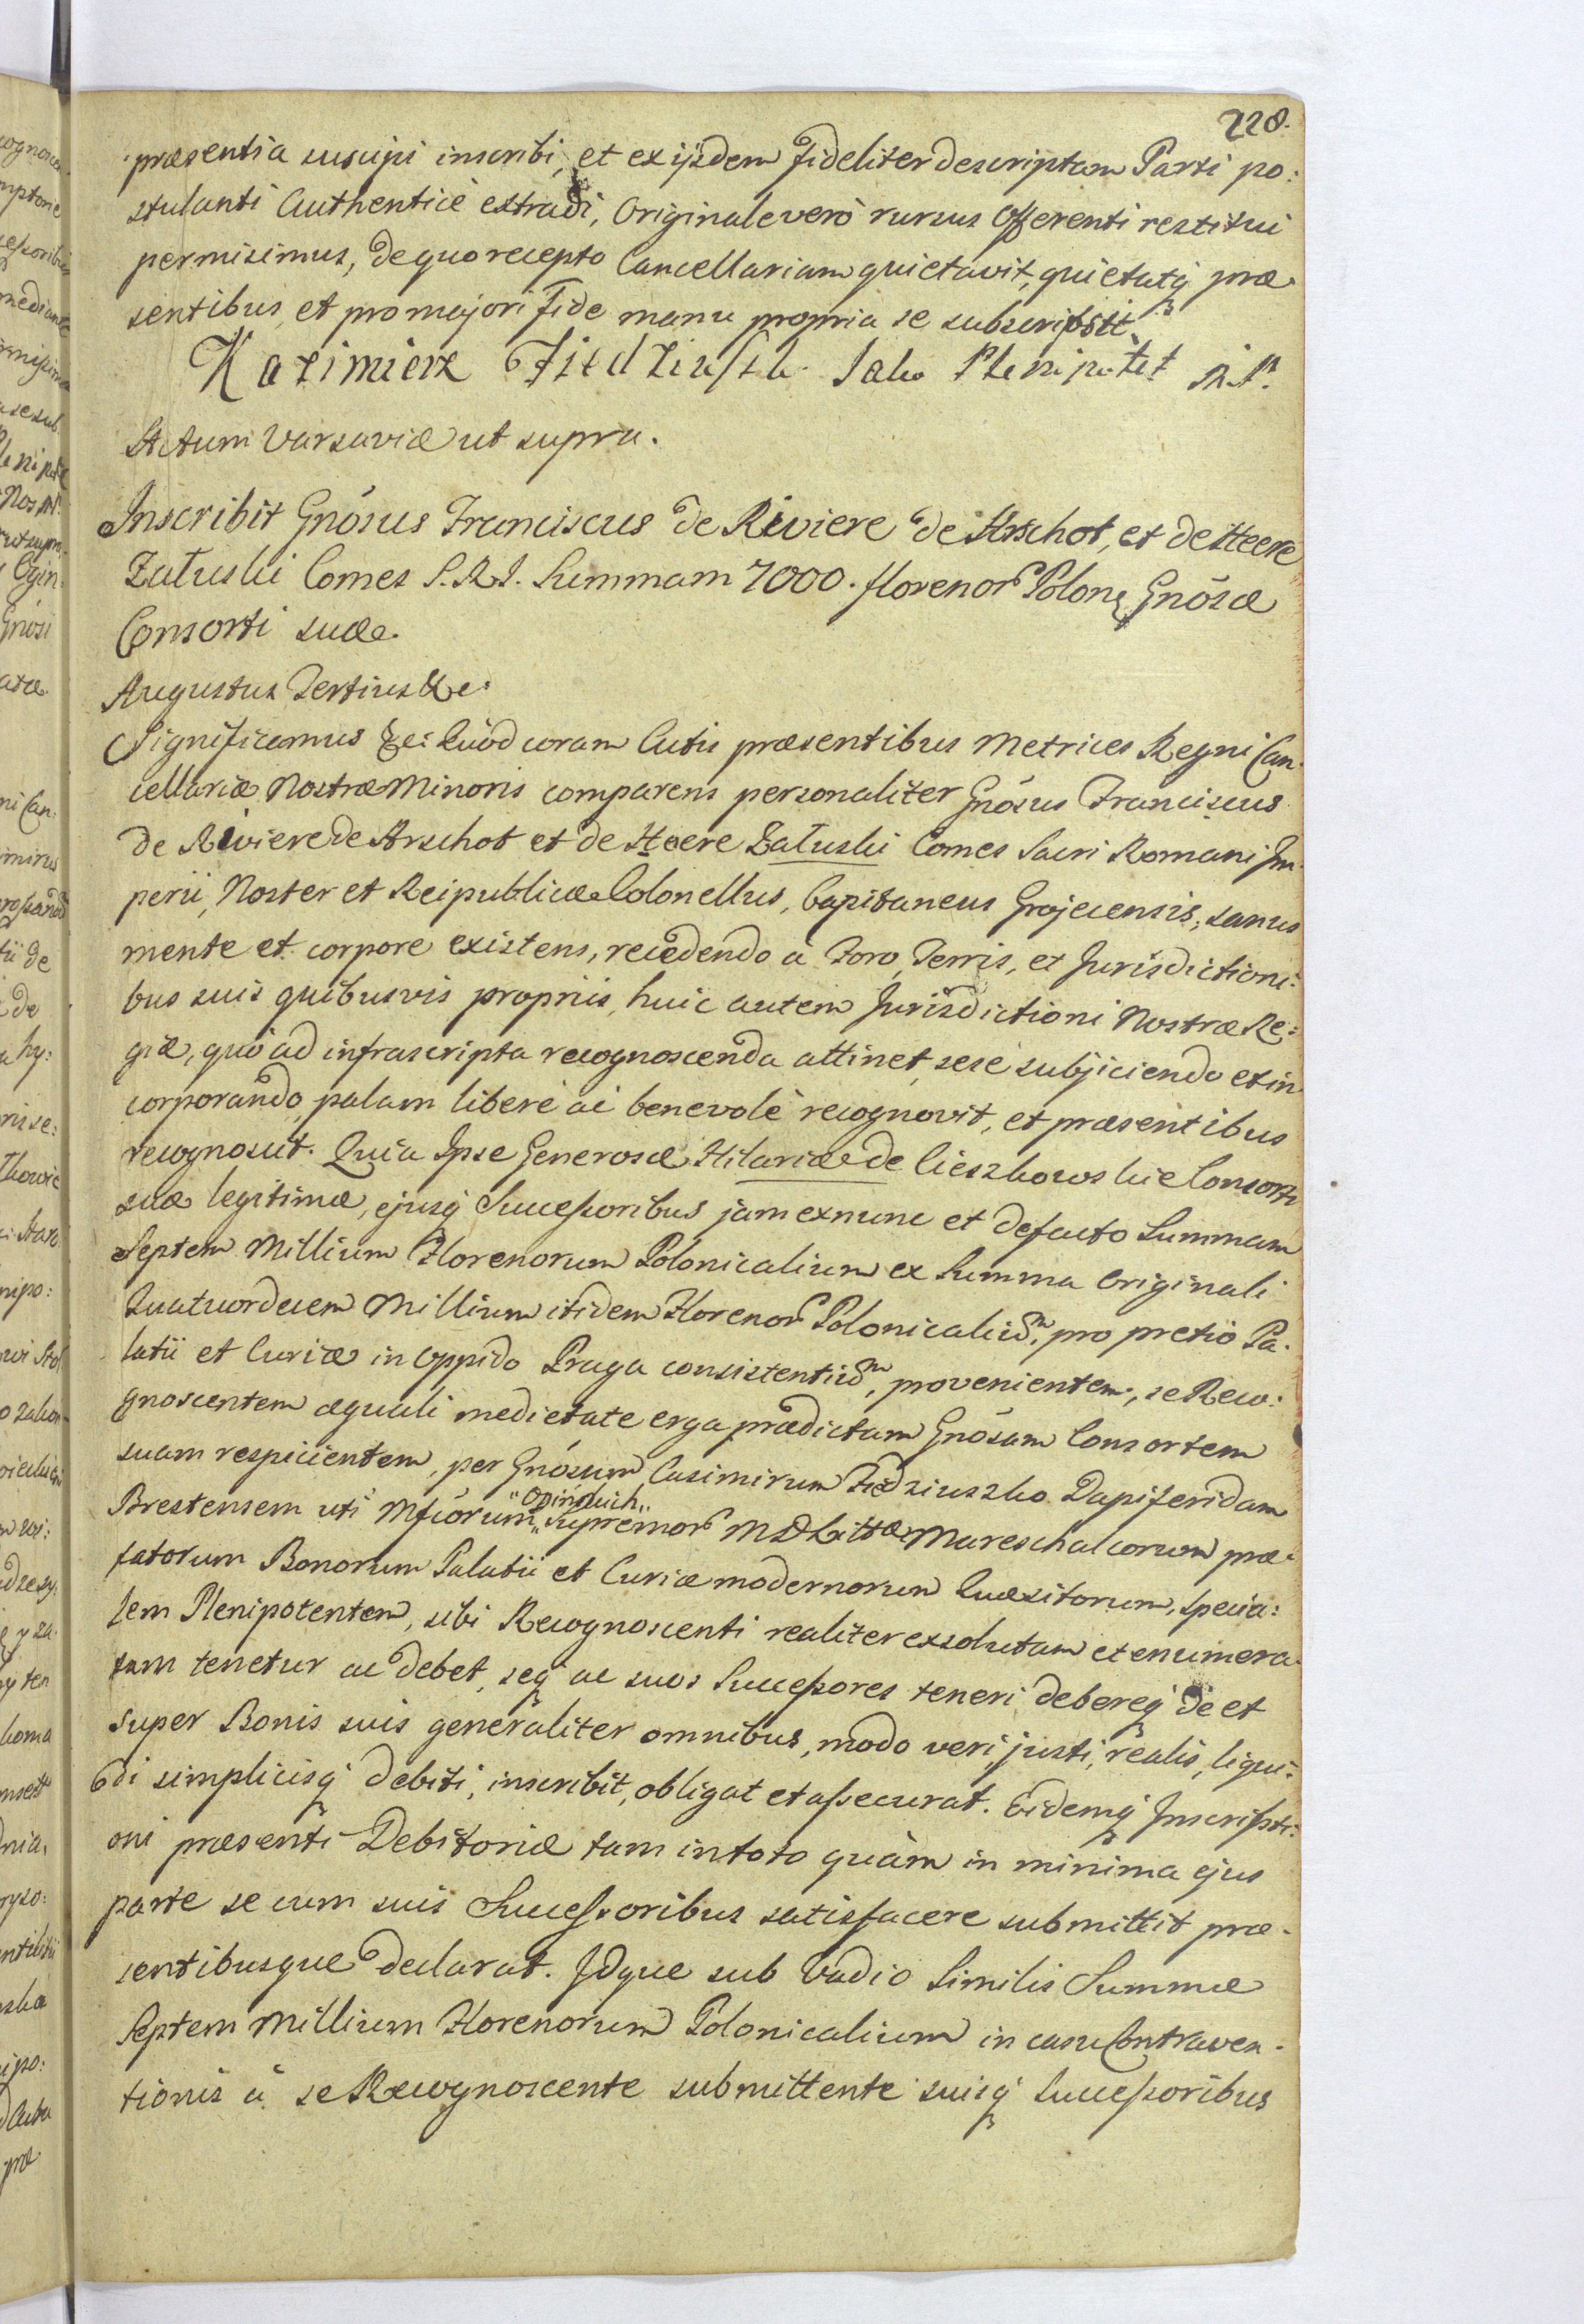 228.
præsentia suscipi inscribi, et ex ijsdem fideliter descriptam Parti po:
stulanti Authenticè extradi, Originale verò rursus Offerenti restitui
permisimus, de quo recepto Cancellariam quietavit, quietatq præ
sentibus, et pro majori fide manu propria se subscripsit.
Kazimierz Jako Plenipotet M.P.
Actum Varsaviæ ut supra.
Inscribit Gnósus Franciscus de Riviere de Arschot, et de Heere
Załuski Comes S.R.I. Summam 7000. florenor Polon Gnósæ
Consorti suæ.
Augustus Tertius &c:
Significamus &c: Quòd coram Actis præsentibus Metrices Regni Can
cellariæ Nostræ Minoris comparens personaliter Gnósus Franciscus
de Riviere de Arschot et de Heere Załuski Comes Sacri Romani Im
perii, Noster et Reipublicæ Colonellus, Capitaneus Grojecensis, sanus
mente et corpore existens, recedendo à Foro, Terris, et Jurisdictioni:
bus suis quibusvis propriis, huic autem Jurisdictioni Nostræ Re:
giæ, quò ad infrascripta recognoscenda attinet, sese subjiciendo et in
corporando, palam liberè ac benevolè recognovit, et præsentibus
recognoscit. Quia Ipse Generosæ Hilariæ de Cieszkowskie Consorti
suæ legitimæ, ejusq Successoribus jam ex nunc et de facto Summam
Septem Millium Florenorum Polonicalium ex Summa Originali
Quatuordecem Millium itidem Florenor Polonicaliu̅m, pro pretio Pa:
latii et Curiæ in Oppido Praga consistentiu̅m, provenientem, se Reco:
gnoscentem æquali medietate erga prædictam Gnósam Consortem
suam respicientem, per Gnósum Casimirum Fiedziuszko Dapiferidam
Brestensem uti Mficórum "Oginskich" Supremor M D Littæ Mareschalcorum præ
fatorum Bonorum Palatii et Curiæ modernorum Quæsitorum, specia:
lem Plenipotentem, sibi Recognoscenti realiter exsolutam et enumera
tam tenetur ac debet, seq ac suos Successores teneri debereq de et
super Bonis suis generaliter omnibus, modo veri, justi, realis, liqui:
di simplicisq debiti, inscribit, obligat et assecurat. Eidemq Inscripti:
oni præsenti Debitoriæ tam in toto quàm in minima ejus
parte se cum suis Successoribus satisfacere submittit præ-
sentibusque declarat. Idque sub Vadio Similis Summæ
Septem Millium Florenorum Polonicalium in casu Contraven-
tionis à se Recognoscente submittente suisq Successoribus